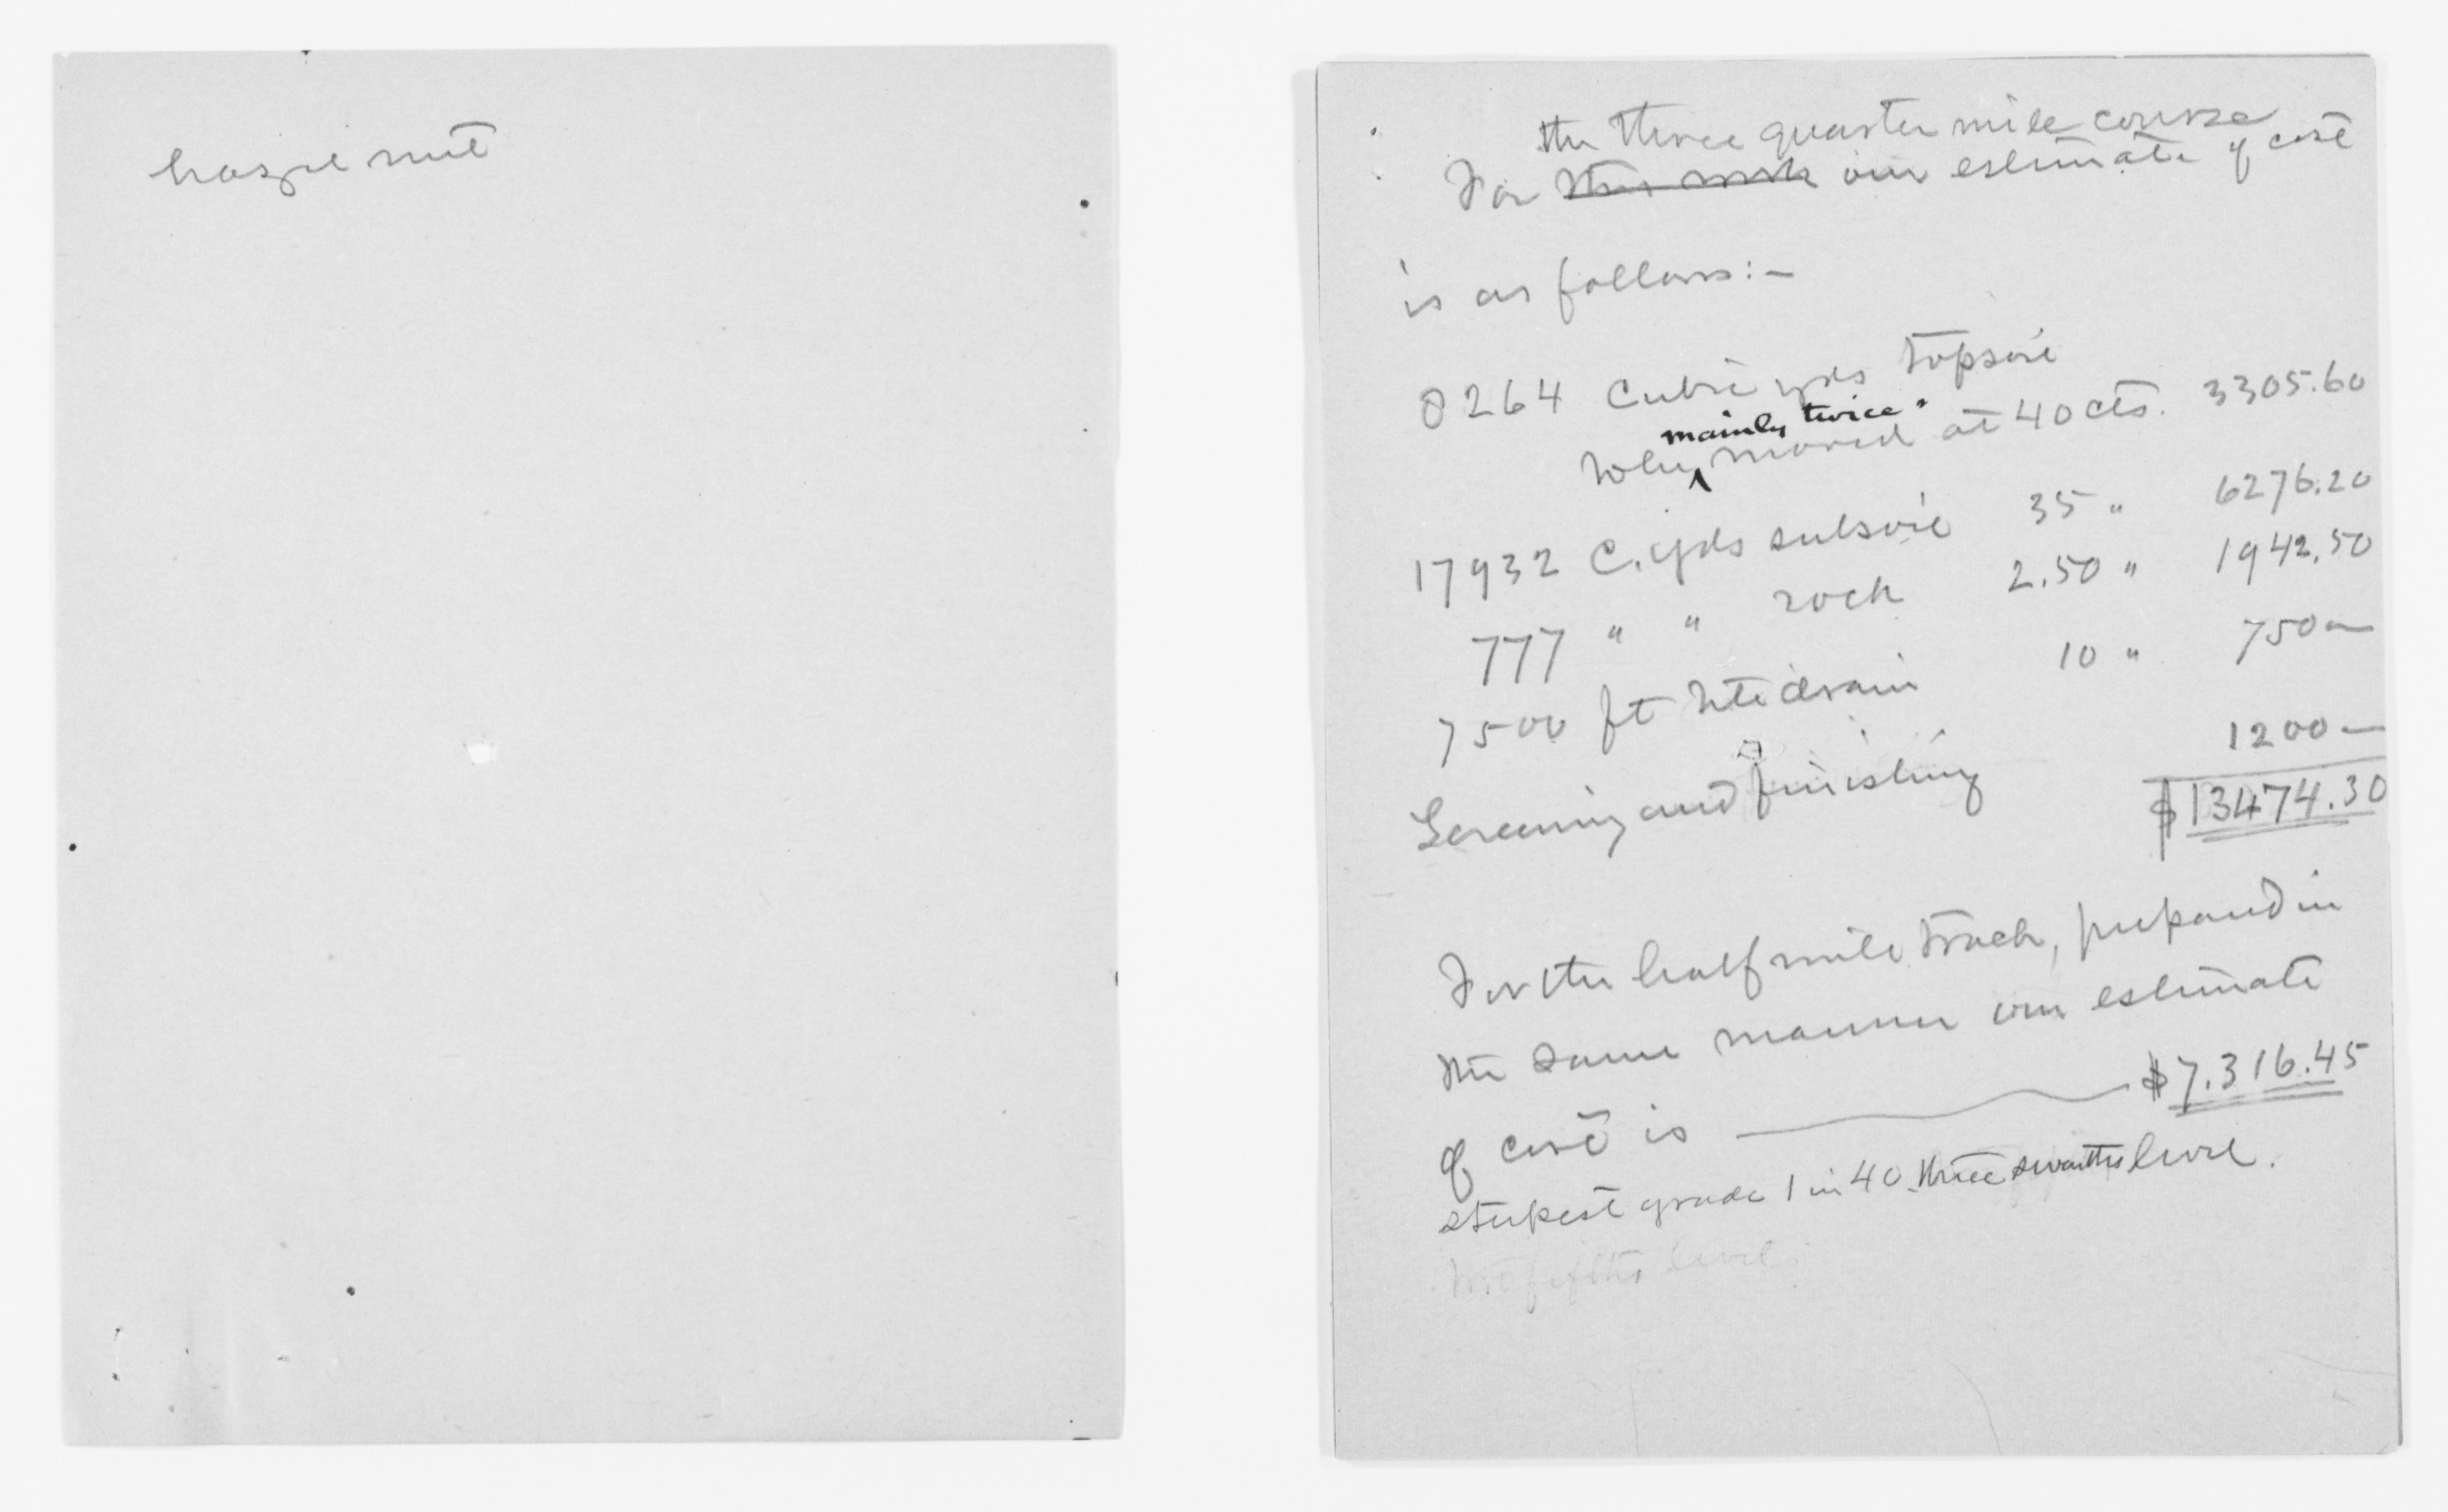 hazel nut
the three quarter mile course
For this work our estimate of cost
is as follows:-
8264 Cubic yds topsoil
mainly twice
moved at 40 cts. 3305.60
17932 C. yds subsoil 35 " 6276.20
777 " " rock 2.50 " 1942.50
7500 ft tile drain 10 " 750—
Screening and finishing 1200—
$13474.30
For the half mile track, prepared in
the same manner our estimate
of cost is — $7.316.45
steepest grade 1 in 40. three sevenths level.
two fifths level.